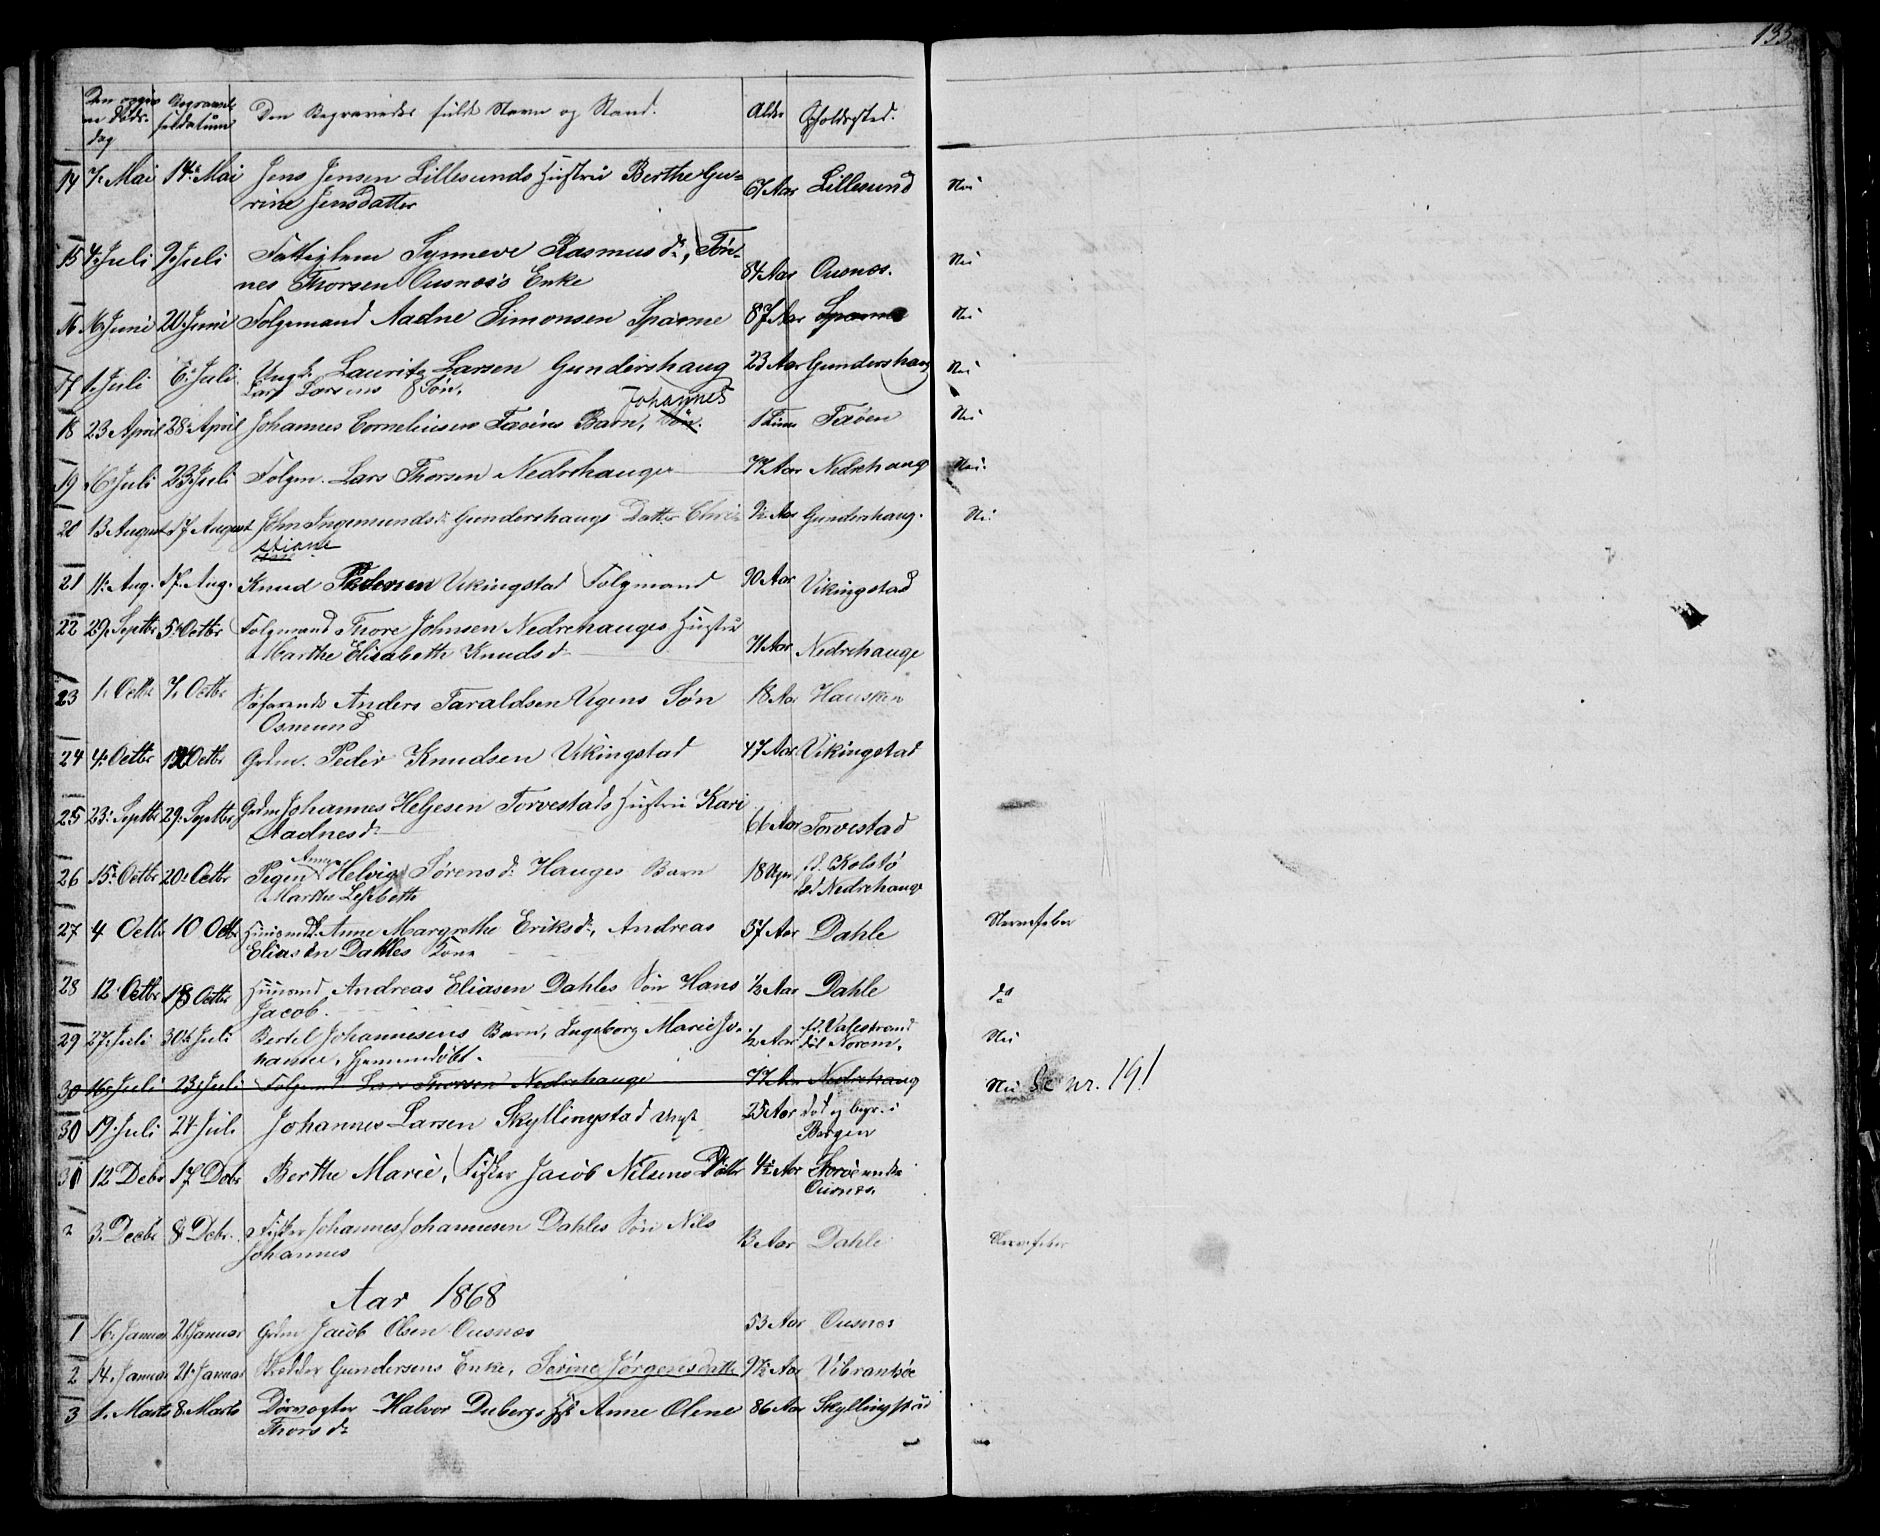 133
Den opgiv- Begravel- Den Begravedes fulde Navn og Stand. Alder Opholdssted.
ne Døds- sesdatum
dag
14 7. Mai 14. Mai Jens Jensen Lillesunds Hustru Berthe Gu- 67 Aar Lillesund Nei
rine Jensdatter
15 4. Juli 9. Juli Fattiglem Synneve Rasmusd:, Tøn- 84 Aar Ousnes. Nei
nes Thorsen Ousnes's Enke
16 16 Juni 20 Juni Folgemand Aadne Simonsen Spanne 87 Aar Spanne Nei
17 1. Juli 6. Juli Ungk. Lauritz Larsen Gundershaug 23 Aar Gundershaug Nei
Lars Larsens Søn.
Johannes
18 23 April 28 April Johannes Corneliusens Fæøens Barn, Søn. 1 Time Fæøen Nei
19 16. Juli 23. Juli Folgem. Lars Thorsen Nedrehauge 77 Aar Nedrehaug Nei.
20 13 August 17 August John Ingemundsd: Gundershaugs Datter Chri- ½ Aar Gundershaug. Nei
stiane
21 11. Aug. 17. Aug. Knud Pedersen Vikingstad Folgmand 90 Aar Vikingstad
22 29. Septbr 5. Octbr Folgmand Thore Johnsen Nedrehauges Hustru
Marthe Elisabeth Knudsd: 71 Aar Nedrehauge
23 1. Octbr 7. Octbr Søfarende Anders Taraldsen Vigens Søn 18 Aar Hausken
Osmund
24 4. Octbr 12 Octbr Grdm. Peder Knudsen Vikingstad 47 Aar Vikingstad
25 23. Septbr 29. Septbr Grdm Johannes Helgesen Torvestads Hustru Kari 66 Aar Torvestad
Aadnesd:
Anne
26 15. Octbr 20. Octbr Pigen Helvig Sørensd: Hauges Barn 18 Uger fd. Kolstø
Marthe Lisebeth død Nedrehauge
27 4 Octbr 10 Octbr Huusmd. Anne Margrethe Eriksd:, Andreas 37 Aar Dahle Nervefeber
Eliasen Dahles Kone
28 12. Octbr 18 Octbr Huusmd Andreas Eliasen Dahles Søn Hans ⅓ Aar Dahle do
Jacob.
29 27. Juli 30. Juli Bertel Johannesens Barn, Ingeborg Marie Jo- ½ Aar fd. Valestrand Nei
hanne, hjemmedøbt. død Norem.
30 16. Juli 23. Juli Folgem Lars Thorsen Nedrehauge 77 Aar Nedrehaug Nei Se nr. 19!
30 19. Juli 24 Juli Johannes Larsen Skyllingstad Ungk 25 Aar død og begr. i
Bergen
31 12 Debr 17 Debr Berthe Marie, Fisker Jacob Nilsens Datter 4½ Aar Storøe under
Ousnes.
2 3. Decbr 8 Debr. Fisker Johannes Johannesen Dahles Søn Nils 13 Aar Dahle Nervefeber
Johannes
Aar 1868
1 16. Januar 21 Januar Grdm Jacob Olsen Ousnes 53 Aar Ousnes
2 14. Januar 21. Januar Skrædder Gundersens Enke, Serine Jørgensdatter 9½ Aar Vibrandsøe
3 1. Marts 8. Marts Dørvogter Halvor Dubergs Hst Anne Olene 86 Aar Skyllingstad
Thorsd: